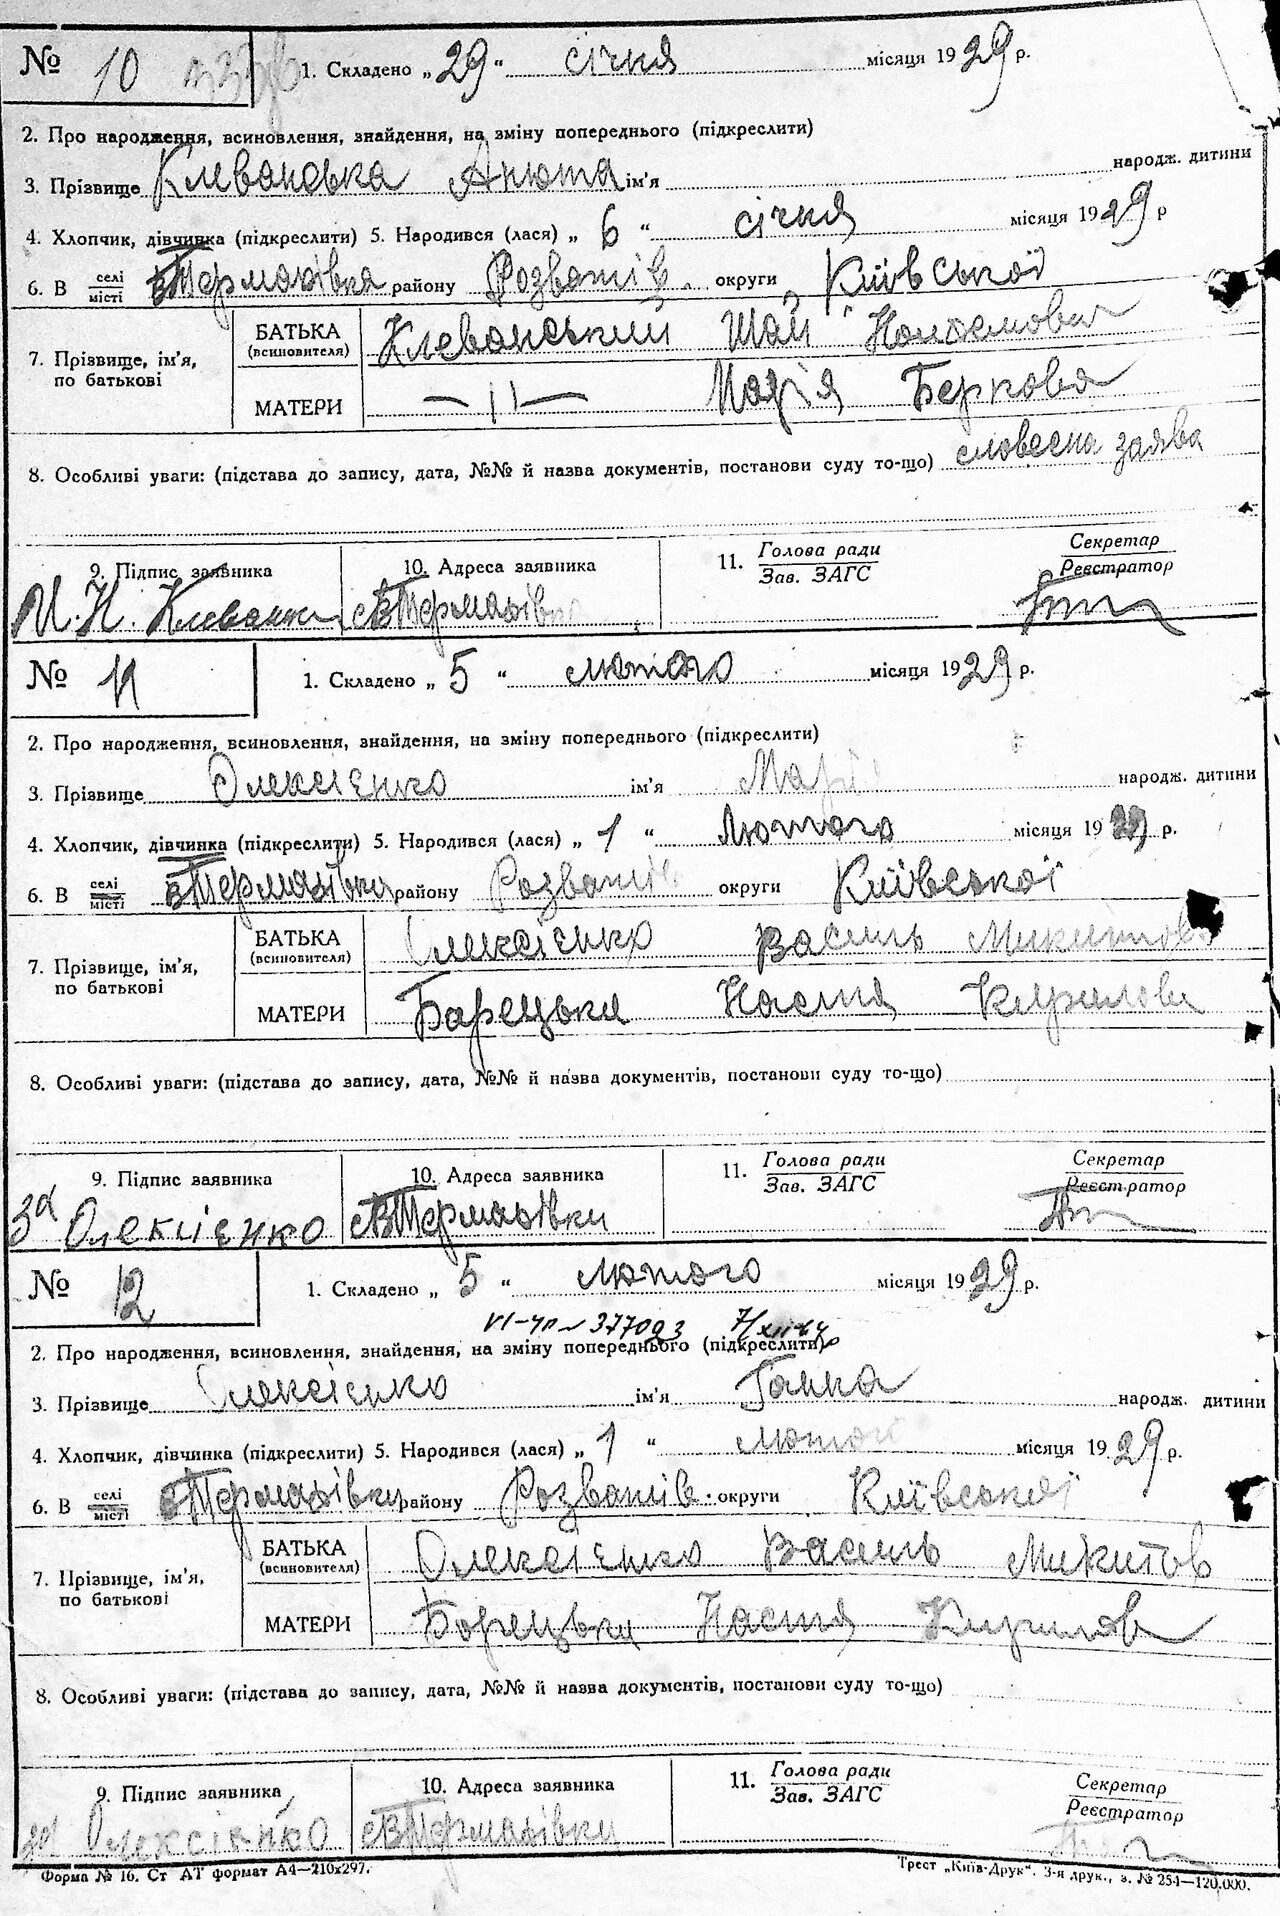 № 10 1. Складено „ 29 “ січня місяця 1929 р.
2. Про народження, всиновлення, знайдення, на зміну попереднього (підкреслити)
3. Прізвище Клеванська Анюта ім'я народж. дитини
4. Хлопчик, дівчинка (підкреслити) 5. Народився (лася) „ 6 “ січня місяця 1929 р
6. В селі місті району Розважів округи Київської
7. Прізвище, ім'я, по батькові БАТЬКА (всиновителя) Клеванський Шай
МАТЕРИ —11— Марія Беркова
8. Особливі уваги: (підстава до запису, дата, №№ й назва документів, постанови суду то-що) словесна заява
9. Підпис заявника 10. Адреса заявника 11. Голова ради Зав. ЗАГС Секретар Реєстратор
№ 11 1. Складено „ 5 “ лютого місяця 1929 р.
2. Про народження, всиновлення, знайдення, на зміну попереднього (підкреслити)
3. Прізвище Олексієнко ім'я Марія народж. дитини
4. Хлопчик, дівчинка (підкреслити) 5. Народився (лася) „ 1 “ Лютого місяця 1929 р.
6. В селі місті району Розважів округи Київської
7. Прізвище, ім'я, по батькові БАТЬКА (всиновителя) Олексієнко Василь Микитов
МАТЕРИ Барецька Настя Кирилова
8. Особливі уваги: (підстава до запису, дата, №№ й назва документів, постанови суду то-що)
9. Підпис заявника 10. Адреса заявника 11. Голова ради Зав. ЗАГС Секретар Реєстратор
за Олексієнко
№ 12 1. Складено „ 5 “ лютого місяця 1929 р.
2. Про народження, всиновлення, знайдення, на зміну попереднього (підкреслити)
3. Прізвище Олексієнко ім'я Ганна народж. дитини
4. Хлопчик, дівчинка (підкреслити) 5. Народився (лася) „ 1 “ лютого місяця 1929 р.
6. В селі місті району Розважів округи Київської
7. Прізвище, ім'я, по батькові БАТЬКА (всиновителя) Олексієнко Василь Микитов
МАТЕРИ Борецька Настя Кирилов
8. Особливі уваги: (підстава до запису, дата, №№ й назва документів, постанови суду то-що)
9. Підпис заявника 10. Адреса заявника 11. Голова ради Зав. ЗАГС Секретар Реєстратор
за Олексієнко
Форма № 16. Ст АТ формат А4—210x297. Трест „Київ-Друк“. 3-я друк., з. № 254—120.000.